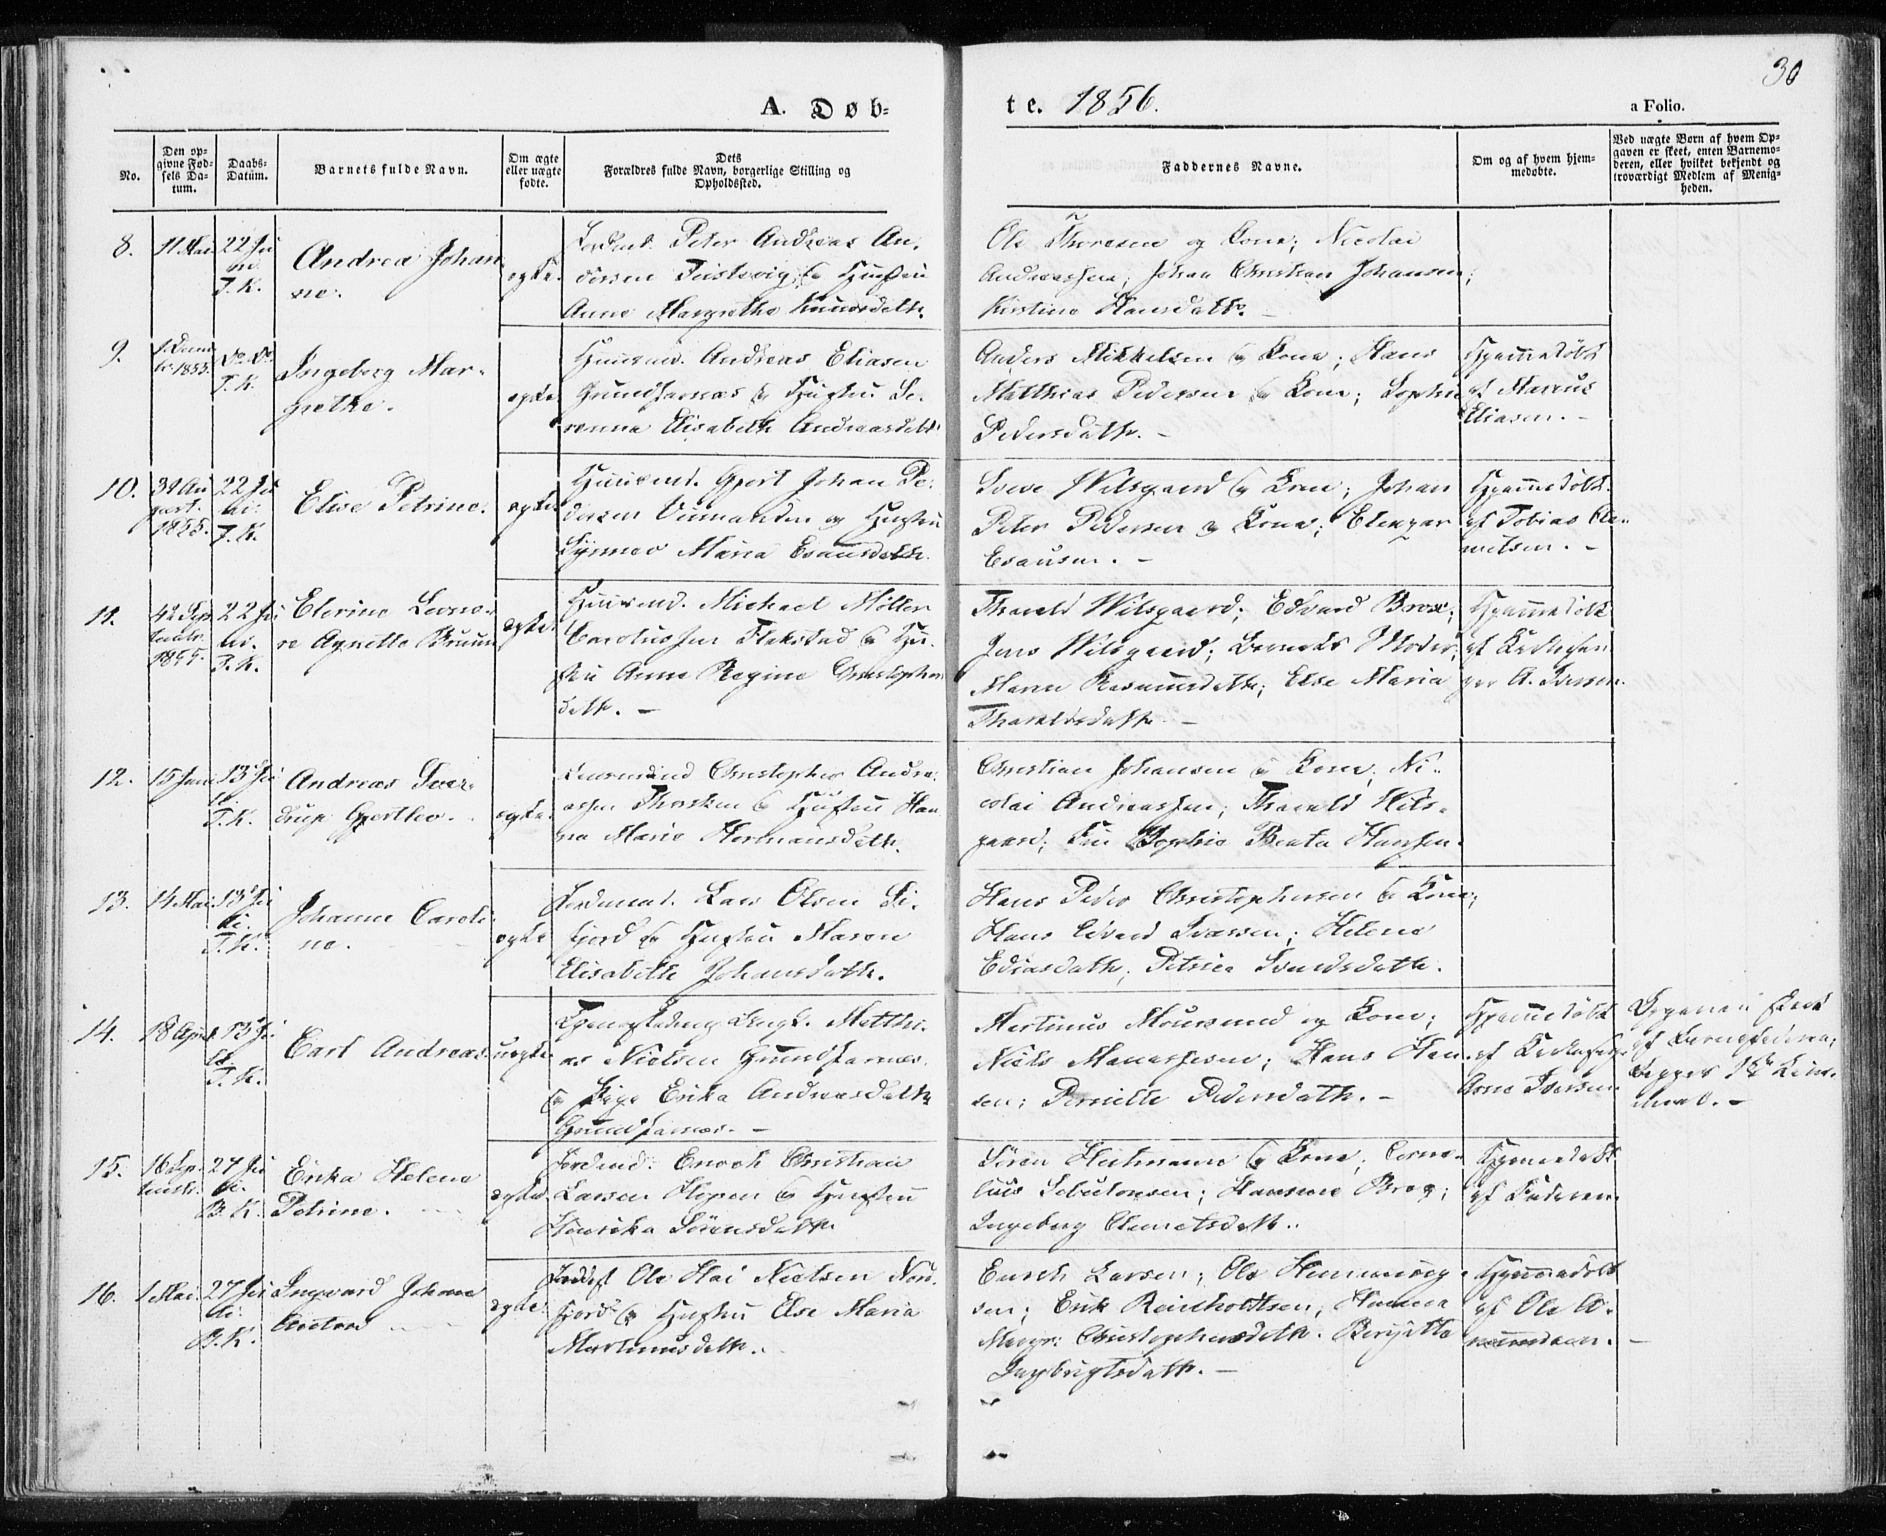 30
A. Døb-
te. 1856.
a Folio.
No.
Den op-
givne Fød-
sels Da-
tum.
Daabs-
Datum.
Barnets fulde Navn.
Om ægte
eller uægte
fødte.
Dets
Forældres fulde Navn, borgerlige Stilling og
Opholdssted.
Faddernes Navne.
Om og af hvem hjem-
medøbte.
Ved uægte Børn af hvem Op-
gaven er skeet, enten Barnemo-
deren, eller hvilket bekjendt og
troværdigt Medlem af Menig-
heden.
8.
11 Mai
22 Ju
ni.
T. K.
Andrea Johan
ne.
ægte.
Peter Andreas An-
dersen Teistevig & Hustru
Anne Margrethe Knudsdatt.
Ole Thoresen og Kone; Nicolai
Andreassen; Johan Christian Johansen;
Kirstine Hansdatt.
9.
1 Decem
br. 1855.
Do. Do.
T. K.
Ingeborg Mar-
grethe.
ægte.
Huusmd. Andreas Eliasen
Grundfarnæs & Hustru Se-
renna Elisabeth Andreasdatt.
Anders Mikkelsen & Kone; Hans
Matthias Pedersen & Kone; Sophie
Pedersdatt. -
Hjemmedøbt
af Marcus
Eliasen. -
10.
31 Au
gust.
1855.
22 Ju
ni.
T. K.
Elise Petrine.
ægte.
Huusmd. Gjert Johan Pe-
dersen og Hustru
Synnev Maria Esausdatt.
Wilsgaard & Kone; Johan
Peter Pedersen & Kone; Eleazar
Esausen. -
Hjemmedøbt
af Tobias Cle-
metsen. -
11.
Sep
tembr.
1855.
22 Ju
ni.
T. K.
Elerine Leono-
re Agnette Bruun
ægte.
Huusmd. Michael Møller
Carolussen Flakstad & Hu-
stru Anne Regine Christopher
datt. -
Tharald Wilsgaard; Edvard Brox;
Jens Wilsgaard; Barnets Moder;
Maren Rasmusdatt; Else Maria
Tharaldsdatt. -
Hjemmedøbt
af Kirkesan-
ger A. Iversen.
12.
15 Juni
13 Ju
li.
T. K.
Andreas Sver-
drup Gjertlev.
ægte.
Huusmand Christopher Andre-
assen Thorsken & Hustru Han-
na Marie Hermansdatt.
Christian Johansen & Kone; Ni-
colai Andreassen; Tharald Wils-
gaard; Sophie Beata Hansen.
13.
14 Mai
13 Ju
li.
T. K.
Johanne Caroli-
ne.
ægte
Lars Olsen Si-
fjord & Hustru Maren
Elisabeth Johansdatt.
Hans Peder Christophersen & Kone;
Hans Edvard Ivarsen; Helene
Ediasdatt; Petrica Svendsdatt.
14.
18 April
13 Ju
li.
T. K.
Carl Andreas.
uægte
Ungk. Matthi-
as Nielsen Grundfarnæs
& Pige Erika Andreasdatt
Grundfarnæs. -
Martinus Moursund og Kone;
Niels Manassesen; Hans Han-
sen; Pernille Pedersdatt. -
Hjemmedøbt
af Kirkesanger
Arne Iversen
Opgaven skeet
af Barnefaderen;
begges 1ste Leier-
maal. -
15.
16 Sep
tembr.
27 Ju
li.
B. K.
Erika Helene
Petrine.
ægte
Jordmd. Enoch Christian
Larsen & Hustru
Henrika Sørensdatt.
Søren Heitmann & Kone; Corne-
lius Sebulonsen; Hansine Brox;
Ingeborg Clemetsdatt.
Hjemmedøbt
af Faderen
16.
1 Mai.
27 Ju
li.
B. K.
Ingvard Johan
ægte.
Ole Hai Nielsen Nord-
fjord & Hustru Else Maria
Martinusdatt.
Enoch Larsen; Ole Henning-
sen; Erik Reinholdtsen; Hanna
Margr. Christophersdatt. Berjette
Ingebrigtsdatt. -
Hjemmedøbt
af Ole A-
mundsen. -